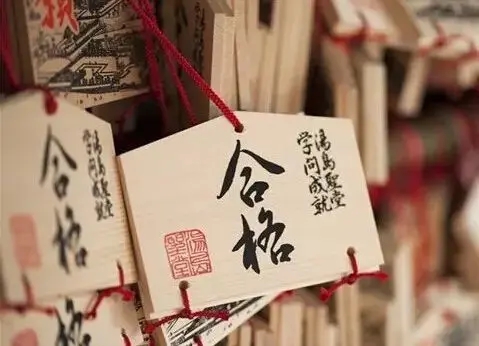 湯島聖堂
学問成就
合格
湯島聖堂
学問成就
合格
格